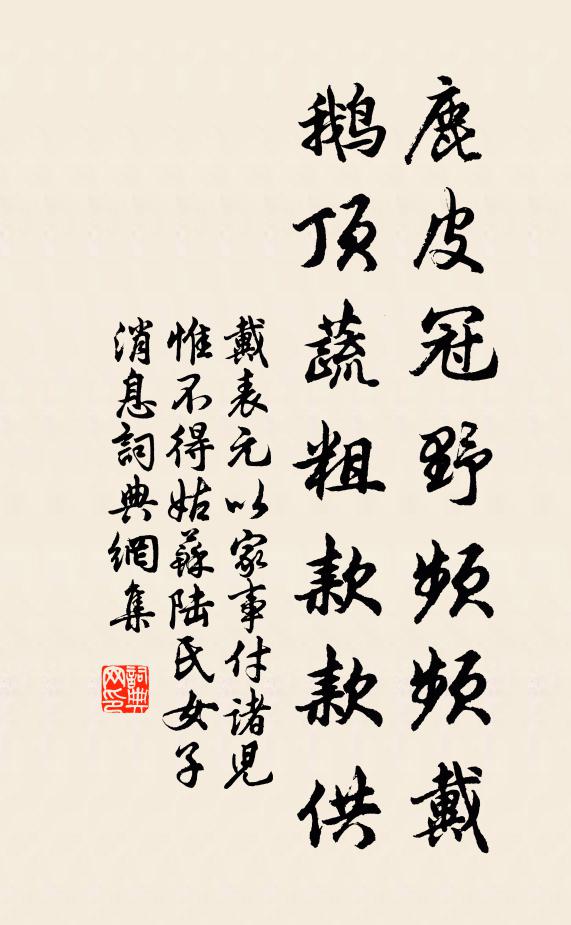 鹿皮冠野頻頻戴
鵝頂蔬粗款款供
戴表元以家事付諸兒
惟不得姑蘇陸氏女子
消息詞典網集
詞典
网印